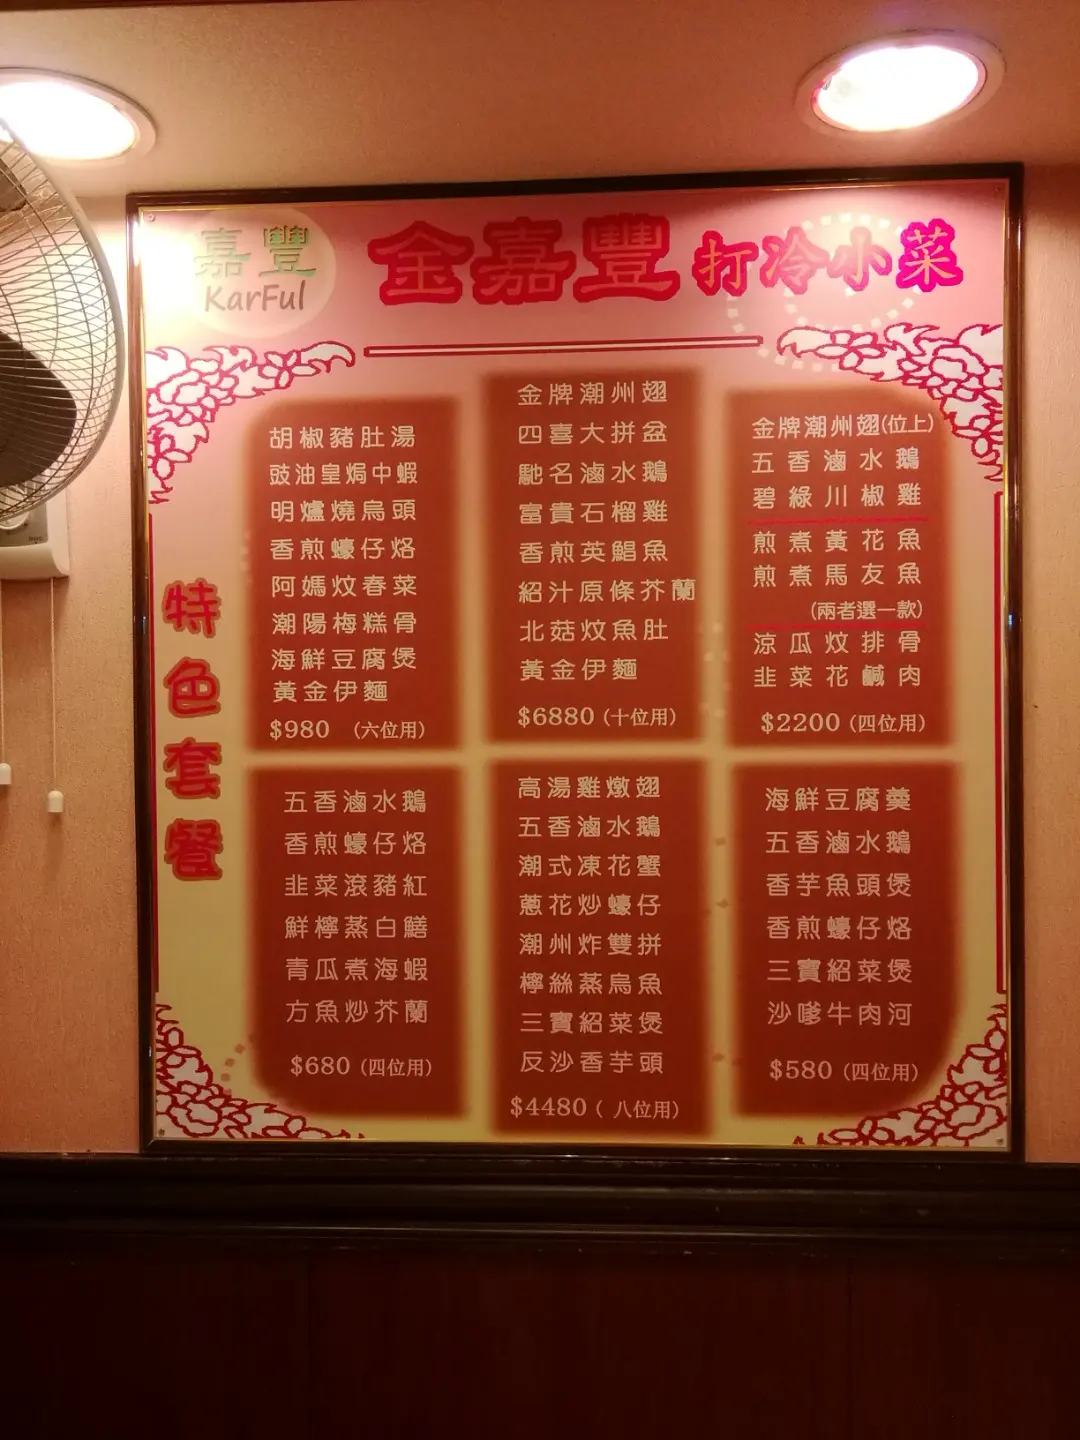 嘉豐
KarFul
金嘉豐打冷小菜
特色套餐
胡椒豬肚湯
豉油皇焗中蝦
明爐燒烏頭
香煎蠔仔烙
阿媽炆春菜
潮陽梅糕骨
海鮮豆腐煲
黃金伊麵
$980 (六位用)
金牌潮州翅
四喜大拼盆
馳名滷水鵝
富貴石榴雞
香煎英鯧魚
紹汁原條芥蘭
北菇炆魚肚
黃金伊麵
$6880 (十位用)
金牌潮州翅(位上)
五香滷水鵝
碧綠川椒雞
煎煮黃花魚
煎煮馬友魚
(兩者選一款)
涼瓜炆排骨
韭菜花鹹肉
$2200 (四位用)
五香滷水鵝
香煎蠔仔烙
韭菜滾豬紅
鮮檸蒸白鱔
青瓜煮海蝦
方魚炒芥蘭
$680 (四位用)
高湯雞燉翅
五香滷水鵝
潮式凍花蟹
蔥花炒蠔仔
潮州炸雙拼
檸絲蒸烏魚
三寶紹菜煲
反沙香芋頭
$4480 ( 八位用)
海鮮豆腐羹
五香滷水鵝
香芋魚頭煲
香煎蠔仔烙
三寶紹菜煲
沙嗲牛肉河
$580 (四位用)